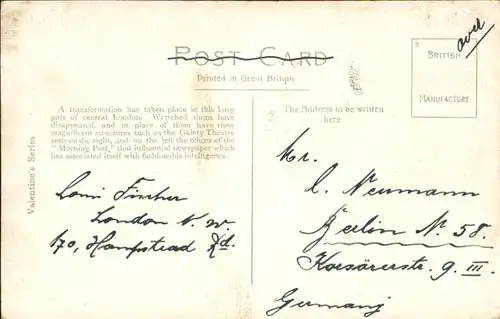 POST CARD
Printed in Great Britain
BRITISH
MANUFACTURE
over
Valentine's Series
A transformation has taken place in this busy
part of central London. Wretched slums have
disappeared, and in place of them have risen
magnificent structures such as the Gaiety Theatre
seen on the right, and on the left the offices of the
"Morning Post," that influential newspaper which
has associated itself with fashionable intelligence.
The Address to be written
here
Fischer
London N. W
170, Hampstead Rd.
Mr.
C. Neumann
Berlin N. 58.
Korsörerstr. 9. III
Germany